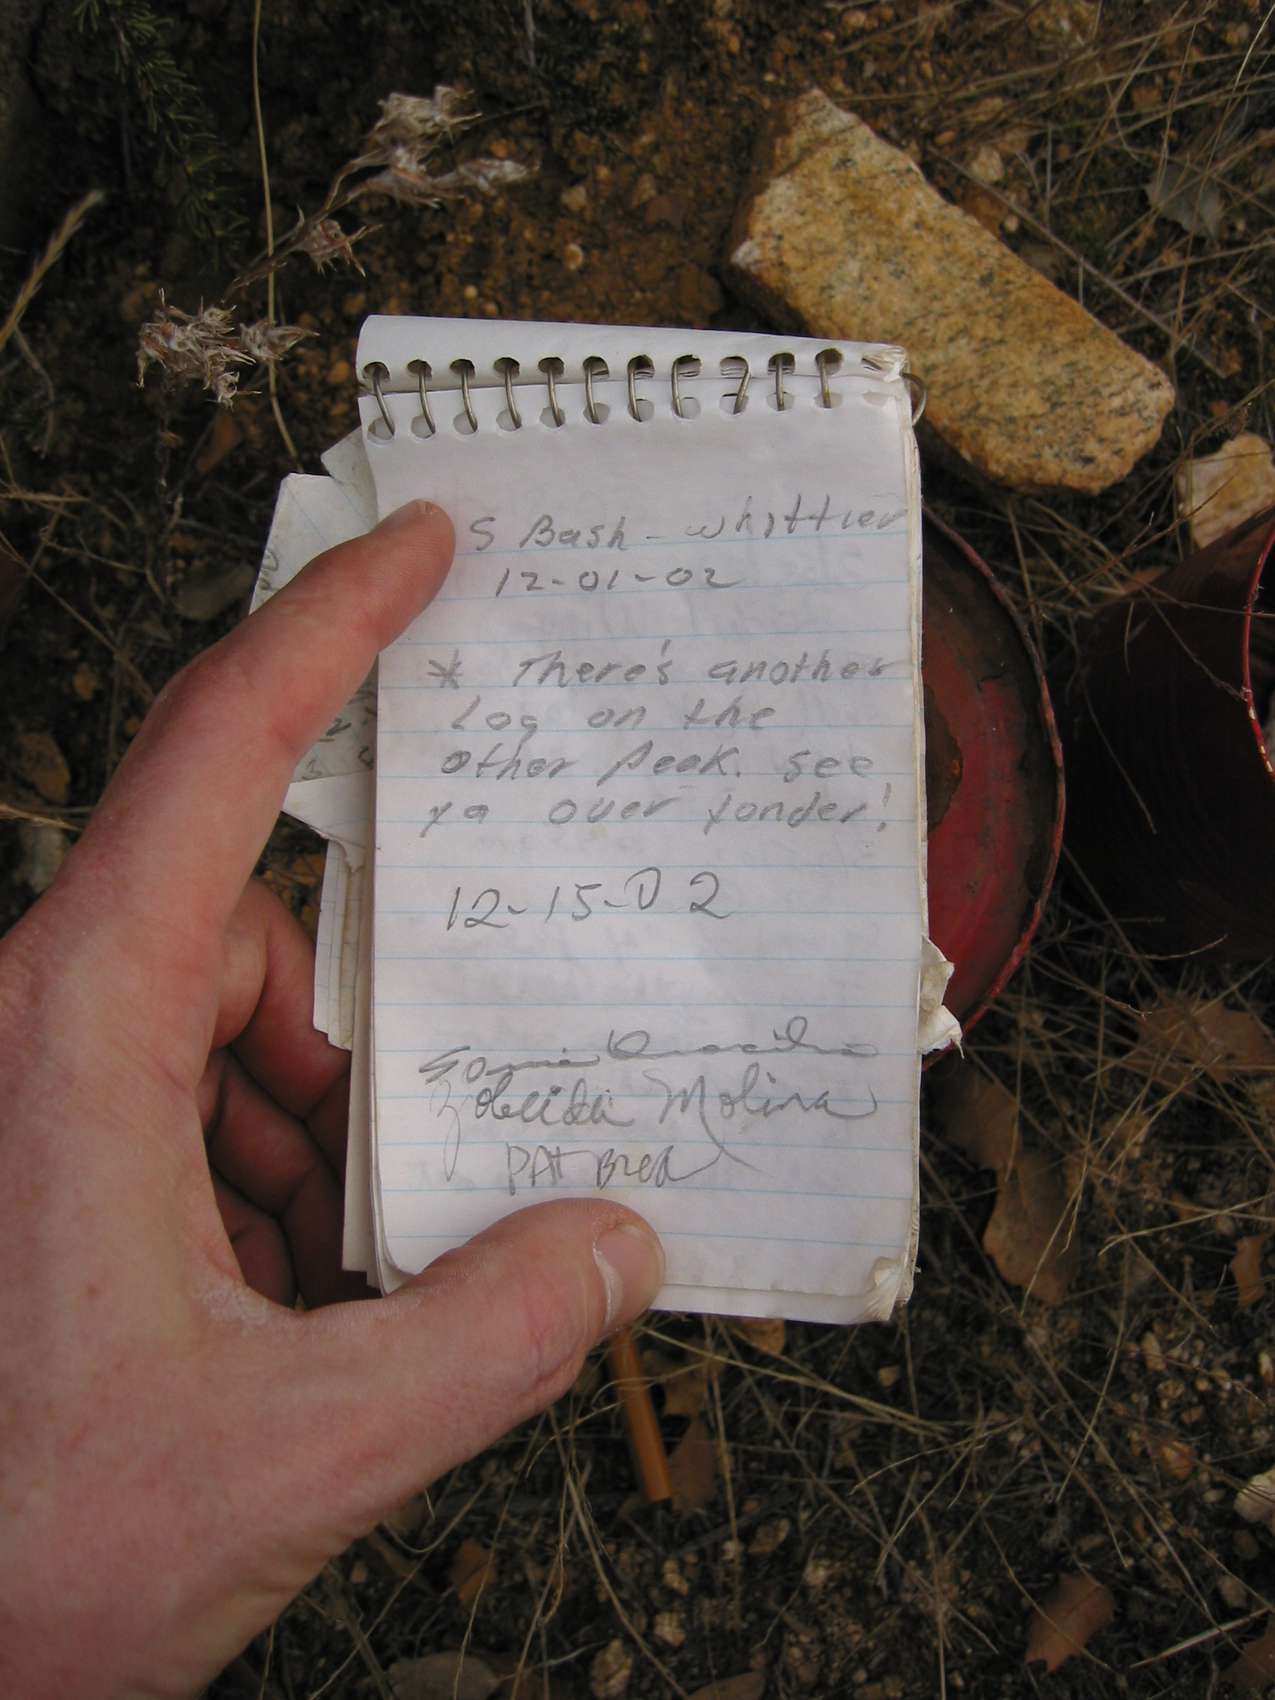 S Bash - Whittier
12-01-02
* There's another
Log on the
other Peak. See
ya over yonder!
12-15-02
Molina
PAt